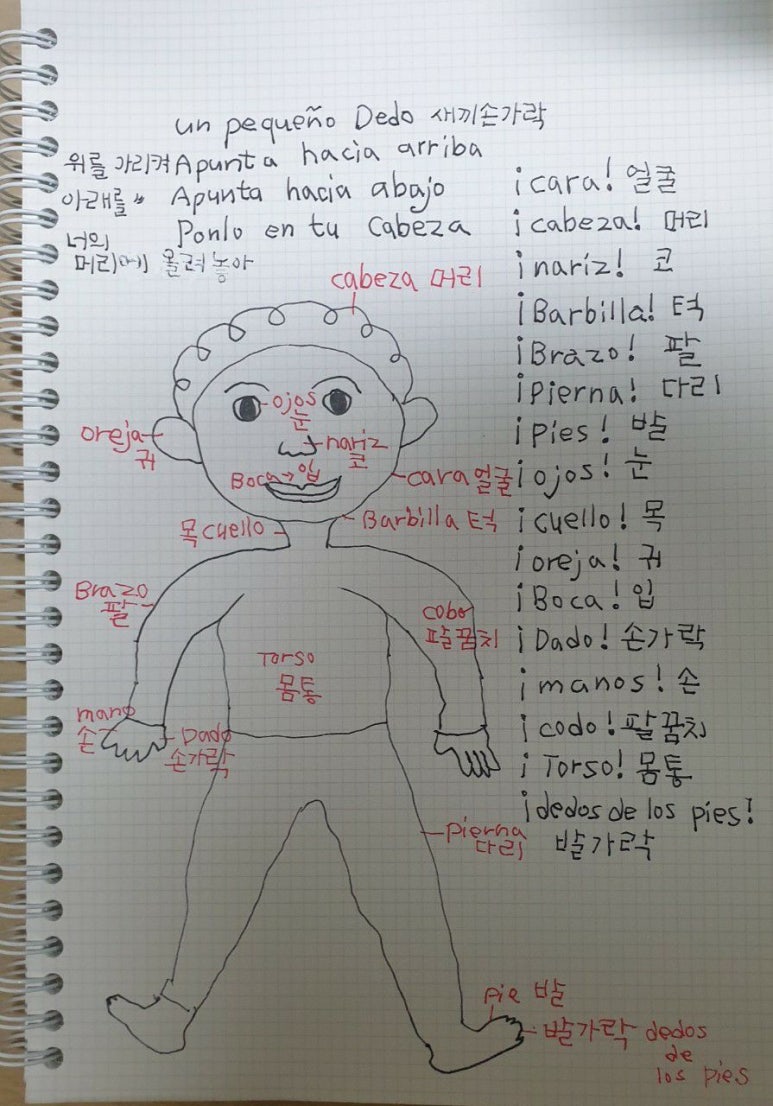 un pequeño Dedo 새끼손가락
위를 가리켜 Apunta hacia arriba
아래를 〃 Apunta hacia abajo
너의 머리에 올려놓아 Ponlo en tu cabeza
¡cara! 얼굴
¡cabeza! 머리
¡nariz! 코
¡Barbilla! 턱
¡Brazo! 팔
¡Pierna! 다리
¡pies! 발
¡ojos! 눈
¡cuello! 목
¡oreja! 귀
¡Boca! 입
¡Dado! 손가락
¡manos! 손
¡codo! 팔꿈치
¡Torso! 몸통
¡dedos de los pies!
발가락
cabeza 머리
ojos
눈
oreja
귀
nariz
코
Boca → 입
cara 얼굴
목 cuello
Barbilla 턱
Brazo
팔
cobo
팔꿈치
Torso
몸통
mano
손
Dado
손가락
Pierna
다리
pie 발
발가락 dedos
de
los pies